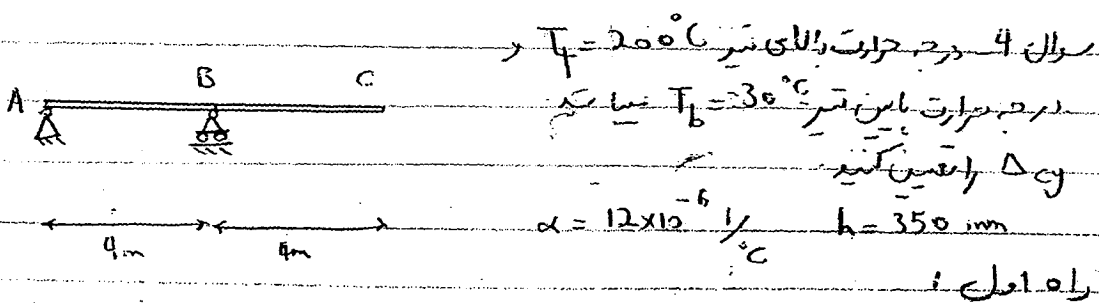 سوال 4 درجه حرارت بالای تیر T_t = 200°C و
درجه حرارت پایین تیر T_b = -30°C میباشد
Δcy را تعیین کنید
α = 12×10⁻⁶ 1/°C h = 350 mm
راه اول :
A B C
4m 4m